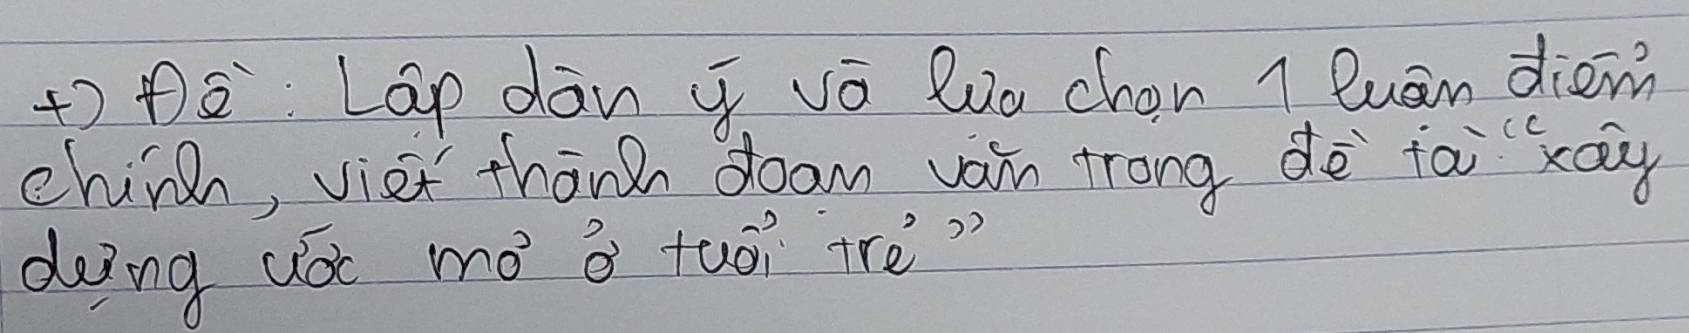 +) Đề: Lập dàn ý và lựa chọn 1 luận điểm
chính, viết thành đoạn văn trong đề tài "xây
dựng ước mơ ở tuổi trẻ"